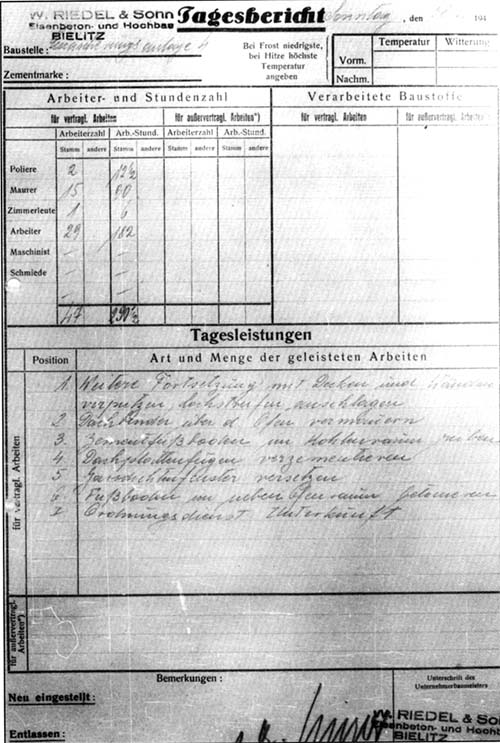 W. RIEDEL & Sonn Tagesbericht Sonntag, den 194
Eisenbeton- und Hochbau
BIELITZ
Baustelle:
Zementmarke:
Bei Frost niedrigste,
bei Hitze höchste
Temperatur
angeben
Temperatur Witterung
Vorm.
Nachm.
Arbeiter- und Stundenzahl Verarbeitete Baustoffe
für vertragl. Arbeiten für außervertragl. Arbeiten*) für vertragl. Arbeiten für außervertragl. Arbeiten
Arbeiterzahl Arb.-Stund. Arbeiterzahl Arb.-Stund.
Stamm andere Stamm andere Stamm andere Stamm andere
Poliere 2 12½
Maurer 15 90
Zimmerleute 1 6
Arbeiter 29 182
Maschinist – –
Schmiede – –
– –
47 290½
Tagesleistungen
Position Art und Menge der geleisteten Arbeiten
für vertragl. Arbeiten
1. Weitere Fortsetzung mit Decken und Wänden
verputzen, anschlagen
2 Dachbinder über d. Ofen vermauern
3. Zementfußboden im
4. verzementieren
5 versetzen
6 Fußboden im neben Ofenraum
7 Ordnungsdienst Unterkunft
für außervertragl. Arbeiten*)
Bemerkungen:
Neu eingestellt:
Entlassen:
Unterschrift des
Unternehmerbaumeisters
W. RIEDEL & Son
Eisenbeton- und Hochb
BIELITZ